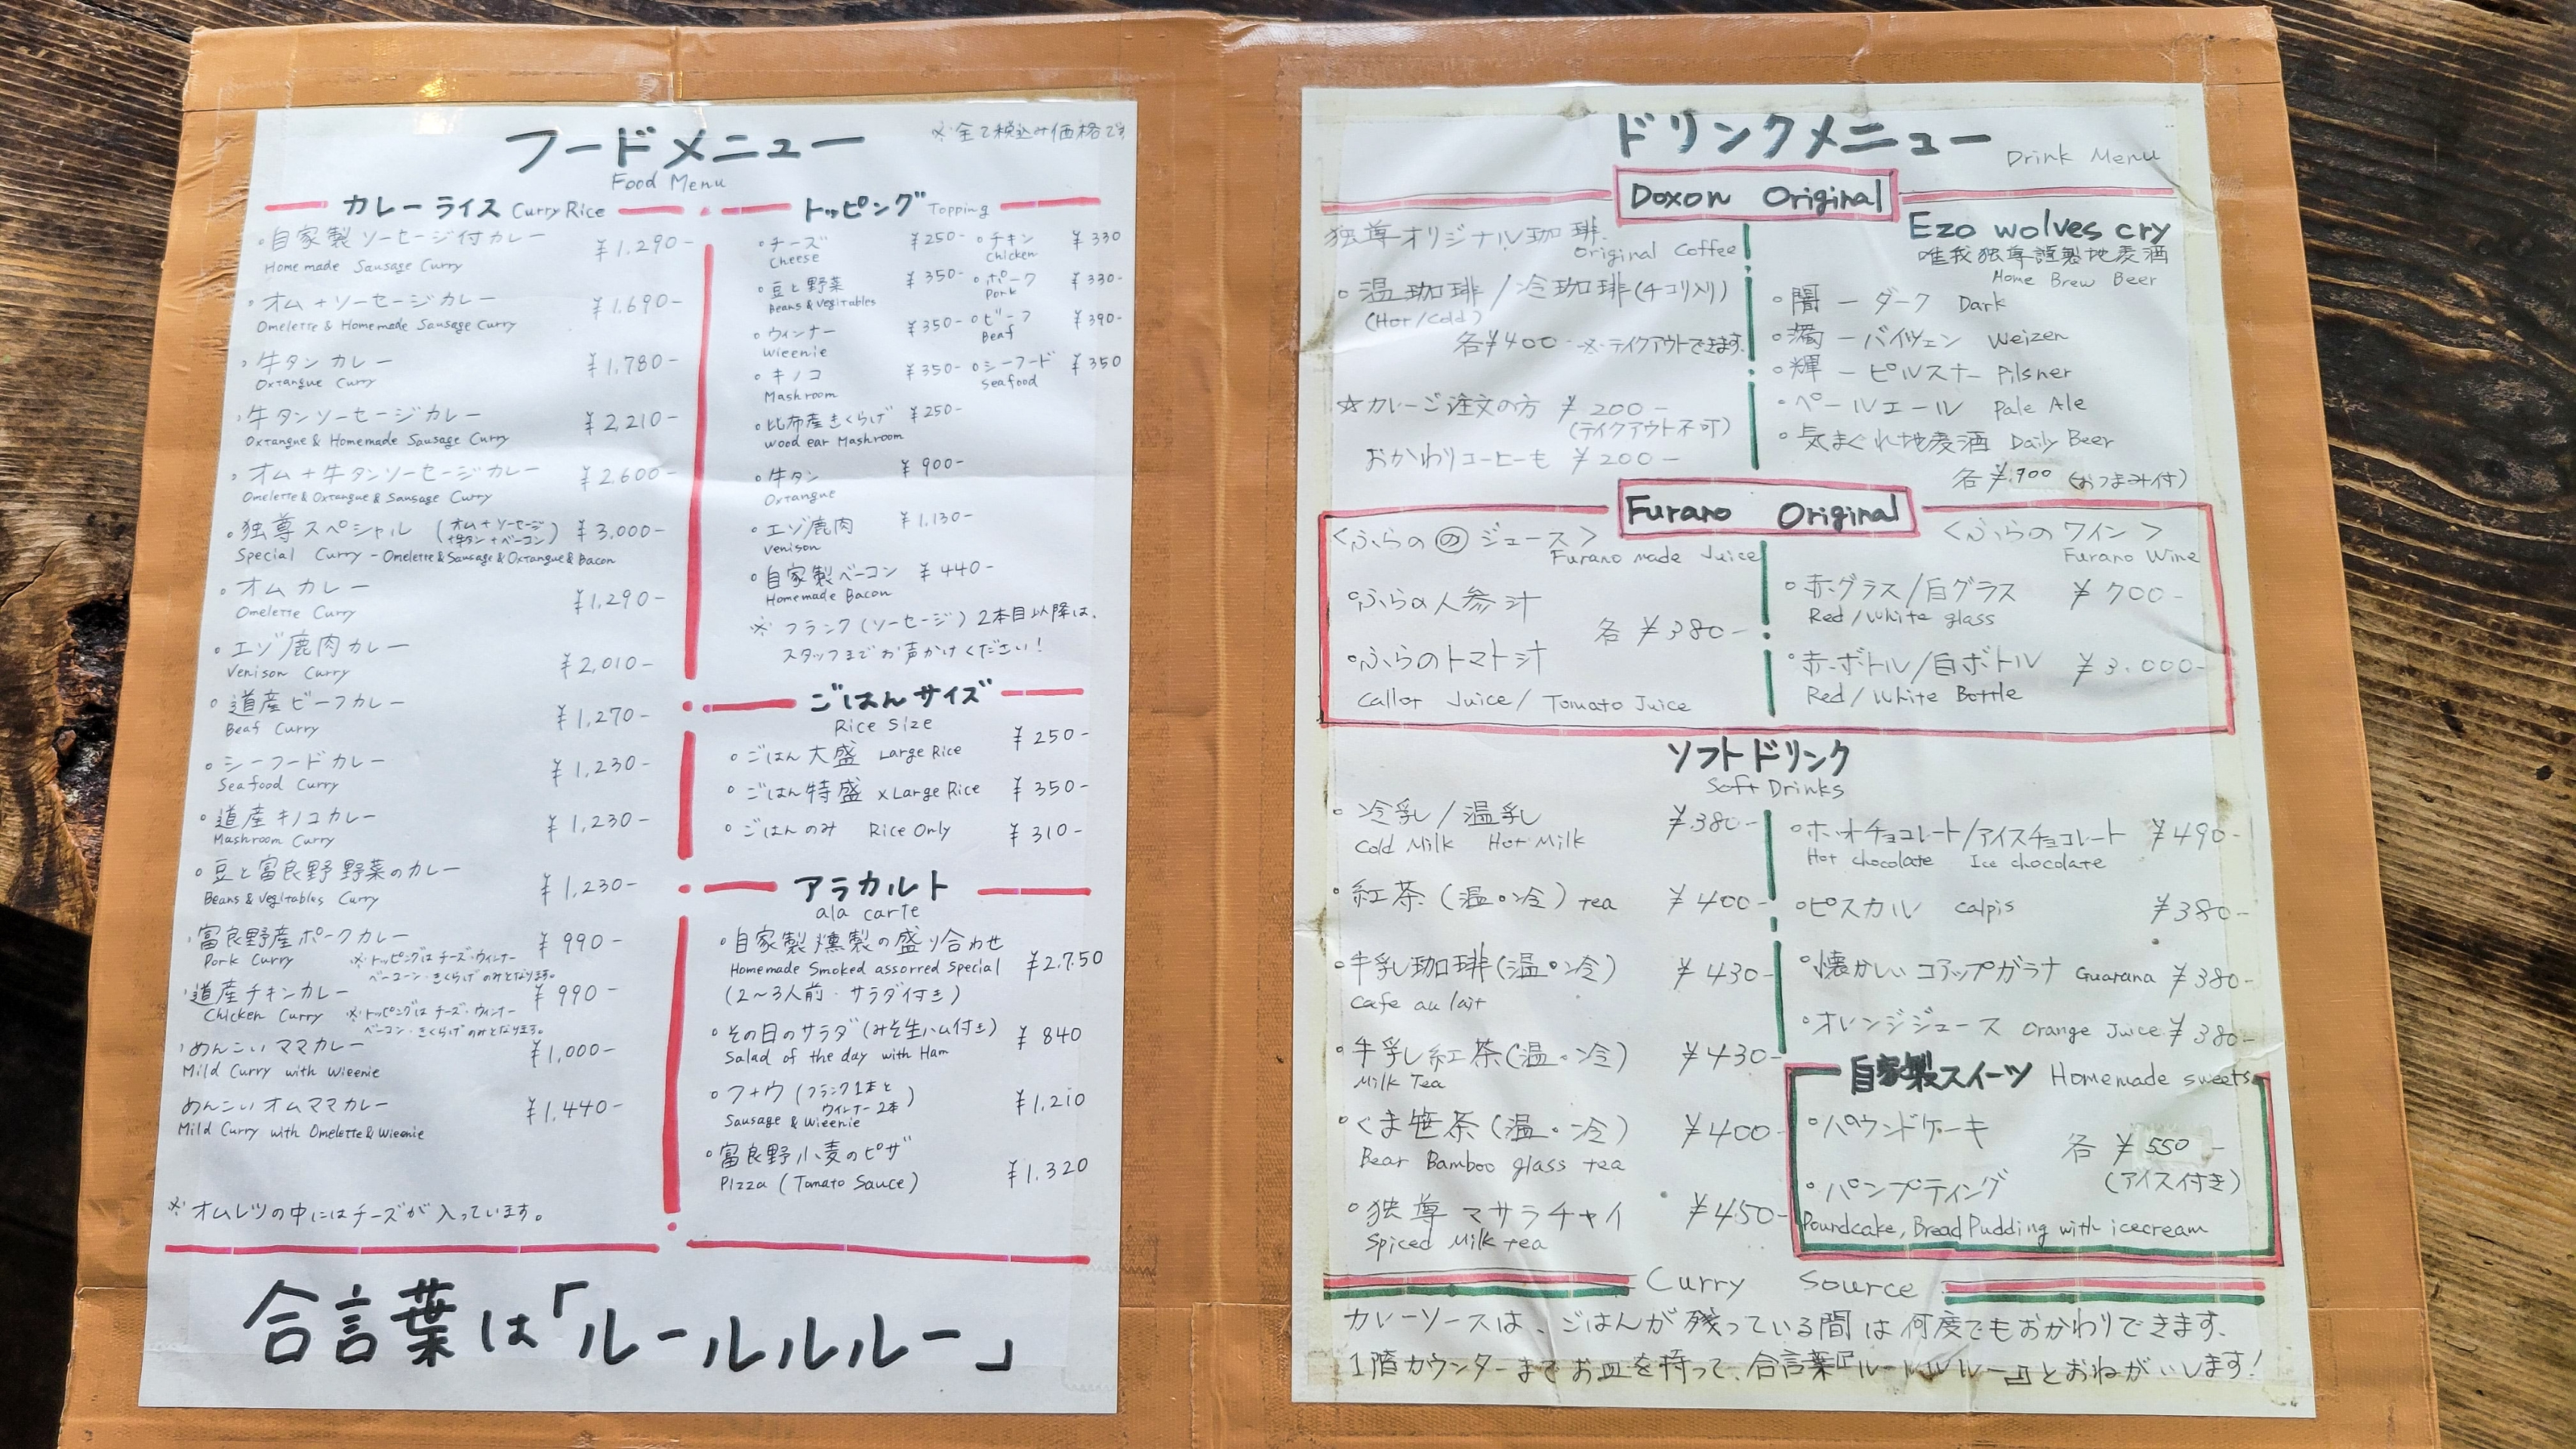 フードメニュー
Food Menu
※全て税込み価格です
カレーライス Curry Rice
・自家製ソーセージ付カレー ¥1,290-
Home made Sausage Curry
・オム+ソーセージカレー ¥1,690-
Omelette & Homemade Sausage Curry
・牛タンカレー ¥1,780-
Oxtangue Curry
・牛タンソーセージカレー ¥2,210-
Oxtangue & Homemade Sausage Curry
・オム+牛タンソーセージカレー ¥2,600-
Omelette & Oxtangue & Sausage Curry
・独尊スペシャル (オム+ソーセージ+牛タン+ベーコン) ¥3,000-
Special Curry - Omelette & Sausage & Oxtangue & Bacon
・オムカレー ¥1,290-
Omelette Curry
・エゾ鹿肉カレー ¥2,010-
Venison Curry
・道産ビーフカレー ¥1,270-
Beaf Curry
・シーフードカレー ¥1,230-
Seafood Curry
・道産キノコカレー ¥1,230-
Mashroom Curry
・豆と富良野野菜のカレー ¥1,230-
Beans & Vegitables Curry
・富良野産ポークカレー ¥990-
Pork Curry ※トッピングはチーズ・ウィンナー
ベーコーン・きくらげのみとなります。
・道産チキンカレー ¥990-
Chicken Curry ※トッピングはチーズ・ウィンナー
ベーコン・きくらげのみとなります。
・めんこいママカレー ¥1,000-
Mild Curry with Wieenie
めんこいオムママカレー ¥1,440-
Mild Curry with Omelette & Wieenie
※オムレツの中にはチーズが入っています。
トッピング Topping
・チーズ ¥250- ・チキン ¥330
Cheese Chicken
・豆と野菜 ¥350- ・ポーク ¥330-
Beans & Vegitables Pork
・ウィンナー ¥350- ・ビーフ ¥390-
Wieenie Beaf
・キノコ ¥350- ・シーフード ¥350
Mashroom Seafood
・比布産きくらげ ¥250-
Wood ear Mashroom
・牛タン ¥900-
Oxtangue
・エゾ鹿肉 ¥1,130-
Venison
・自家製ベーコン ¥440-
Homemade Bacon
※フランク(ソーセージ)2本目以降は、
スタッフまでお声かけください!
ごはんサイズ
Rice Size
・ごはん大盛 Large Rice ¥250-
・ごはん特盛 xLarge Rice ¥350-
・ごはんのみ Rice Only ¥310-
アラカルト
ala carte
・自家製燻製の盛り合わせ
Homemade Smoked assorred Special ¥2,750
(2〜3人前・サラダ付き)
・その日のサラダ(みそ生ハム付き) ¥840
Salad of the day with Ham
・フ+ウ (フランク1本とウィンナー2本) ¥1,210
Sausage & Wieenie
・富良野小麦のピザ ¥1,320
Pizza (Tomato Sauce)
合言葉は「ルールルルー」
ドリンクメニュー Drink Menu
Doxon Original
独尊オリジナル珈琲
Original Coffee
・温珈琲/冷珈琲(チコリ入り)
(Hot/Cold)
各¥400 ※テイクアウトできます。
☆カレーご注文の方 ¥200-
(テイクアウト不可)
おかわりコーヒーも ¥200-
Ezo wolves cry
唯我独尊謹製地麦酒
Home Brew Beer
・闇ーダーク Dark
・濁ーバイツェン Weizen
・輝ーピルスナー Pilsner
・ペールエール Pale Ale
・気まぐれ地麦酒 Daily Beer
各¥900 (おつまみ付)
Furano Original
<ふらの のジュース>
Furano made Juice
・ふらの人参汁
各¥380-
・ふらのトマト汁
Callot Juice / Tomato Juice
<ふらのワイン>
Furano Wine
・赤グラス/白グラス ¥700-
Red/White glass
・赤ボトル/白ボトル ¥3,000-
Red/White Bottle
ソフトドリンク
Soft Drinks
・冷乳/温乳 ¥380-
Cold Milk Hot Milk
・紅茶(温・冷) tea ¥400-
・牛乳珈琲(温・冷) ¥430-
Cafe au lait
・牛乳紅茶(温・冷) ¥430-
Milk Tea
・くま笹茶(温・冷) ¥400-
Bear Bamboo glass tea
・独尊マサラチャイ ¥450-
Spiced Milk tea
・ホットチョコレート/アイスチョコレート ¥490-
Hot chocolate Ice chocolate
・ピスカル calpis ¥380-
・懐かしいコアップガラナ Guarana ¥380-
・オレンジジュース Orange Juice ¥380-
自家製スイーツ Homemade sweets
・パウンドケーキ
各¥550-
・パンプティング (アイス付き)
Poundcake, Bread Pudding with icecream
Curry Source
カレーソースは、ごはんが残っている間は何度でもおかわりできます。
1階カウンターまでお皿を持って、合言葉『ルールルルー』とおねがいします!